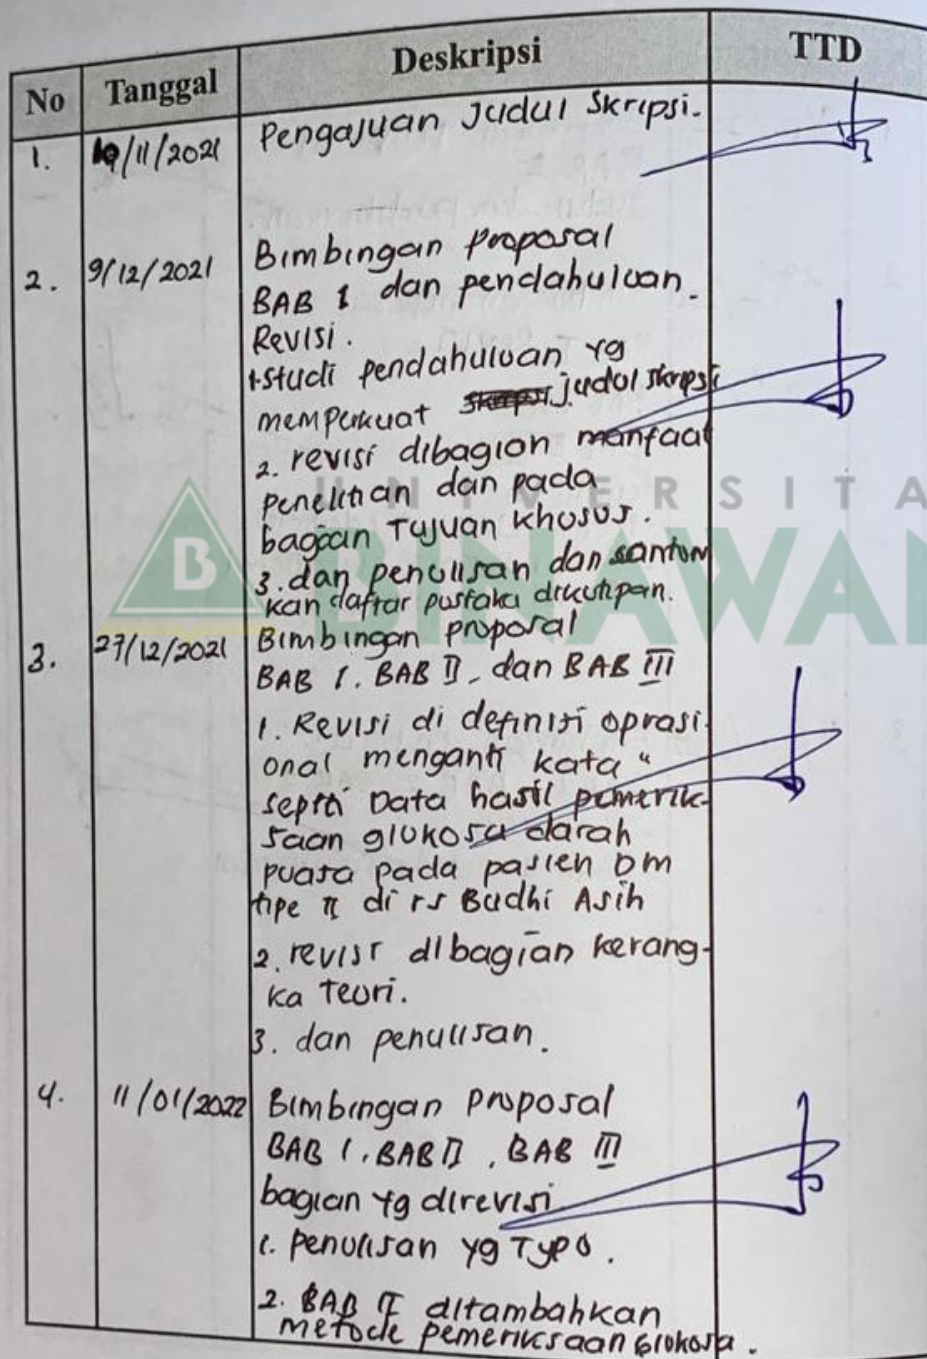 No Tanggal Deskripsi TTD
1. 19/11/2021 Pengajuan Judul Skripsi.
2. 9/12/2021 Bimbingan proposal
BAB 1 dan pendahuluan.
Revisi.
1. Studi pendahuluan yg
memperkuat judul skripsi
2. revisi dibagian manfaat
penelitian dan pada
bagian Tujuan Khusus.
3. dan penulisan dan santum
kan daftar pustaka dikutipan.
3. 27/12/2021 Bimbingan proposal
BAB I. BAB II, dan BAB III
1. Revisi di definisi oprasi-
onal menganti kata "
seprti Data hasil pemerik-
saan glukosa darah
puasa pada pasien DM
tipe II di rs Budhi Asih
2. revisi dibagian kerang-
ka Teori.
3. dan penulisan.
4. 11/01/2022 Bimbingan proposal
BAB I, BAB II, BAB III
bagian yg direvisi
1. penulisan yg Typo.
2. BAB II ditambahkan
metode pemeriksaan glukosa.
UNIVERSITA
B BINAWAN